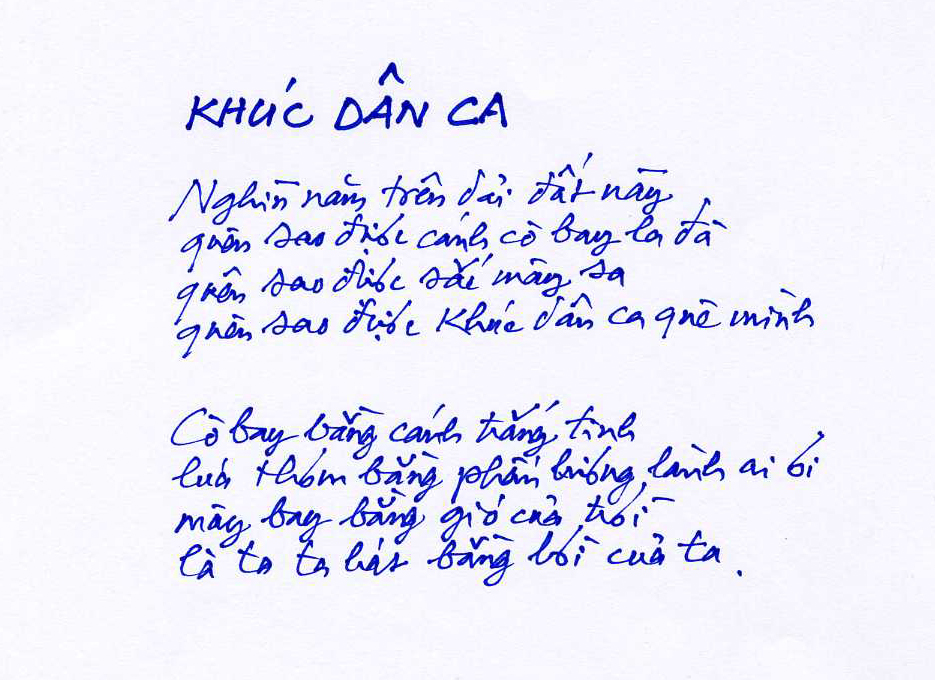 KHÚC DÂN CA
Nghìn năm trên dải đất này
quên sao được cánh cò bay la đà
quên sao được sắc mây sa
quên sao được khúc dân ca quê mình
Cò bay bằng cánh trắng tinh
lúa thơm bằng phấn hương lành ai ơi
mây bay bằng gió của trời
là ta ta hát bằng lời của ta.